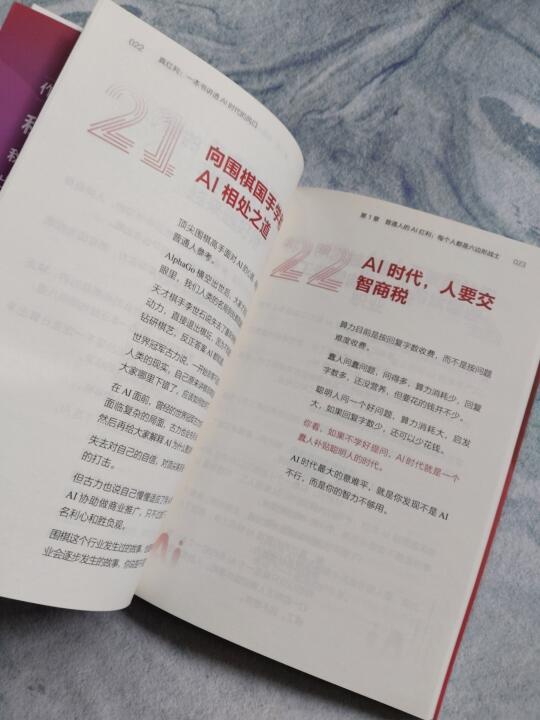 022
真红利：一本书讲透 AI 时代的风口
21
向围棋国手学
AI 相处之道
顶尖围棋高手面对 AI 的
普通人参考。
AlphaGo 横空出世后，大家
眼里，我们人类的名局
天才棋手李世石说失去了
动力，直接退出棋坛，因为
钻研棋艺，反正答案 AI 都
世界冠军古力说，一开始
人类的现实，自己原来讲
大家哪里下错了，应该
在 AI 面前，曾经的世界冠军
面临复杂的局面，古力也
然后再给大家解释 AI 为什么
失去对自己的自信，对
的打击。
但古力也说自己慢慢适应了
AI 协助做商业推广，只不过
名利心和胜负观。
围棋这个行业发生过的故事，
业会逐步发生的故事，
第 1 章 普通人的 AI 红利：每个人都是六边形战士
023
22
AI 时代，人要交
智商税
算力目前是按回复字数收费，而不是按问题
难度收费。
蠢人问蠢问题，问得多，算力消耗少，回复
字数多，还没营养，但要花的钱并不少。
聪明人问一个好问题，算力消耗大，启发
大，如果回复字数少，还可以少花钱。
你看，如果不学好提问，AI 时代就是一个
蠢人补贴聪明人的时代。
AI 时代最大的意难平，就是你发现不是 AI
不行，而是你的智力不够用。